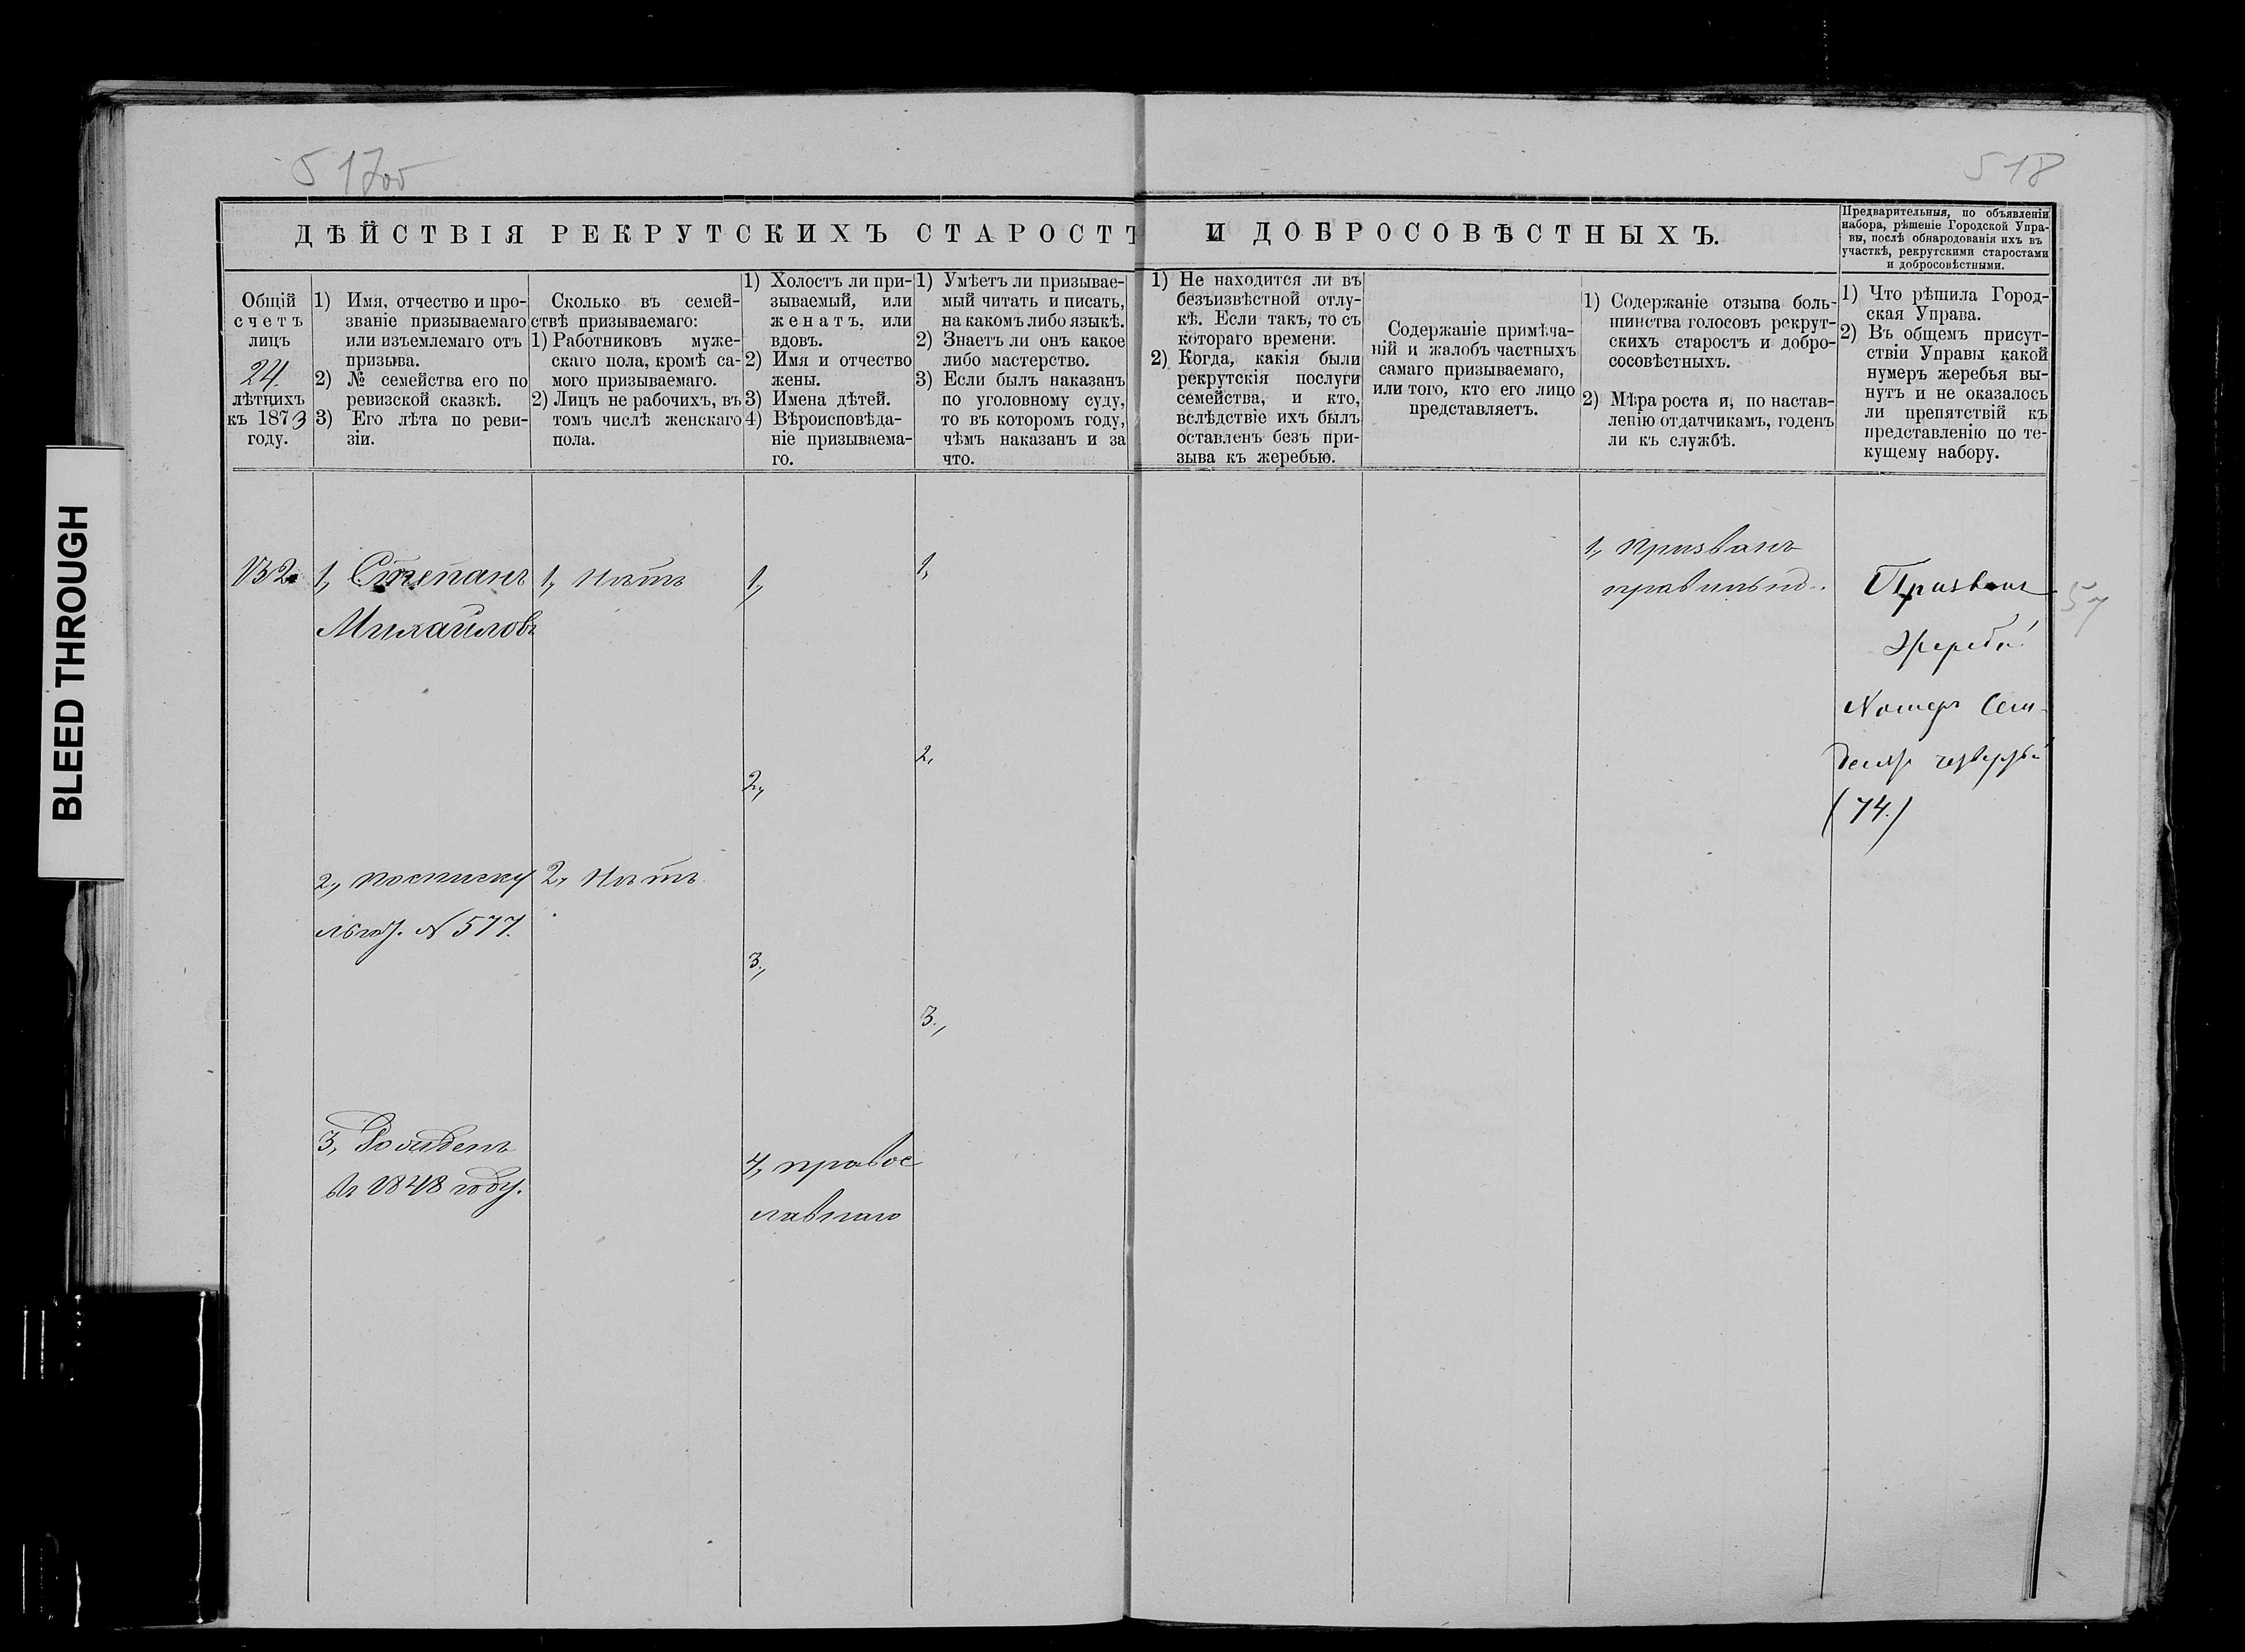 517об
518
ДѢЙСТВІЯ РЕКРУТСКИХЪ СТАРОСТЪ И ДОБРОСОВѢСТНЫХЪ.
Предварительныя, по объявленіи
набора, рѣшеніе Городской Упра-
вы, послѣ обнародованія ихъ въ
участкѣ, рекрутскими старостами
и добросовѣстными.
Общій
счетъ
лицъ
24
лѣтнихъ
къ 1873
году.
1) Имя, отчество и про-
званіе призываемаго
или изъемлемаго отъ
призыва.
2) № семейства его по
ревизской сказкѣ.
3) Его лѣта по реви-
зіи.
Сколько въ семей-
ствѣ призываемаго:
1) Работниковъ муже-
скаго пола, кромѣ са-
мого призываемаго.
2) Лицъ не рабочихъ, въ
томъ числѣ женскаго
пола.
1) Холостъ ли при-
зываемый, или
женатъ, или
вдовъ.
2) Имя и отчество
жены.
3) Имена дѣтей.
4) Вѣроисповѣда-
ніе призываема-
го.
1) Умѣетъ ли призывае-
мый читать и писать,
на какомъ либо языкѣ.
2) Знаетъ ли онъ какое
либо мастерство.
3) Если былъ наказанъ
по уголовному суду,
то въ которомъ году,
чѣмъ наказанъ и за
что.
1) Не находится ли въ
безъизвѣстной отлу-
кѣ. Если такъ, то съ
котораго времени.
2) Когда, какія были
рекрутскія послуги
семейства, и кто,
вслѣдствіе ихъ былъ
оставленъ безъ при-
зыва къ жеребью.
Содержаніе примѣча-
ній и жалобъ частныхъ
самаго призываемаго,
или того, кто его лицо
представляетъ.
1) Содержаніе отзыва боль-
шинства голосовъ рекрут-
скихъ старостъ и добро-
сосовѣстныхъ.
2) Мѣра роста и, по настав-
ленію отдатчикамъ, годенъ
ли къ службѣ.
1) Что рѣшила Город-
ская Управа.
2) Въ общемъ присут-
ствіи Управы какой
нумеръ жеребья вы-
нутъ и не оказалось
ли препятствій къ
представленію по те-
кущему набору.
132
1, Степанъ
Михайловъ
2, по списку
льгот. № 577.
3, Рожденъ
въ 1848 году.
1, Нѣтъ
2, Нѣтъ.
1,
2,
3,
4, правос
лавнаго
1,
2,
3,
1, Призванъ
правильно.
Призванъ
Жребій
Номеръ Семь
десят четверт
(74.)
57
BLEED THROUGH